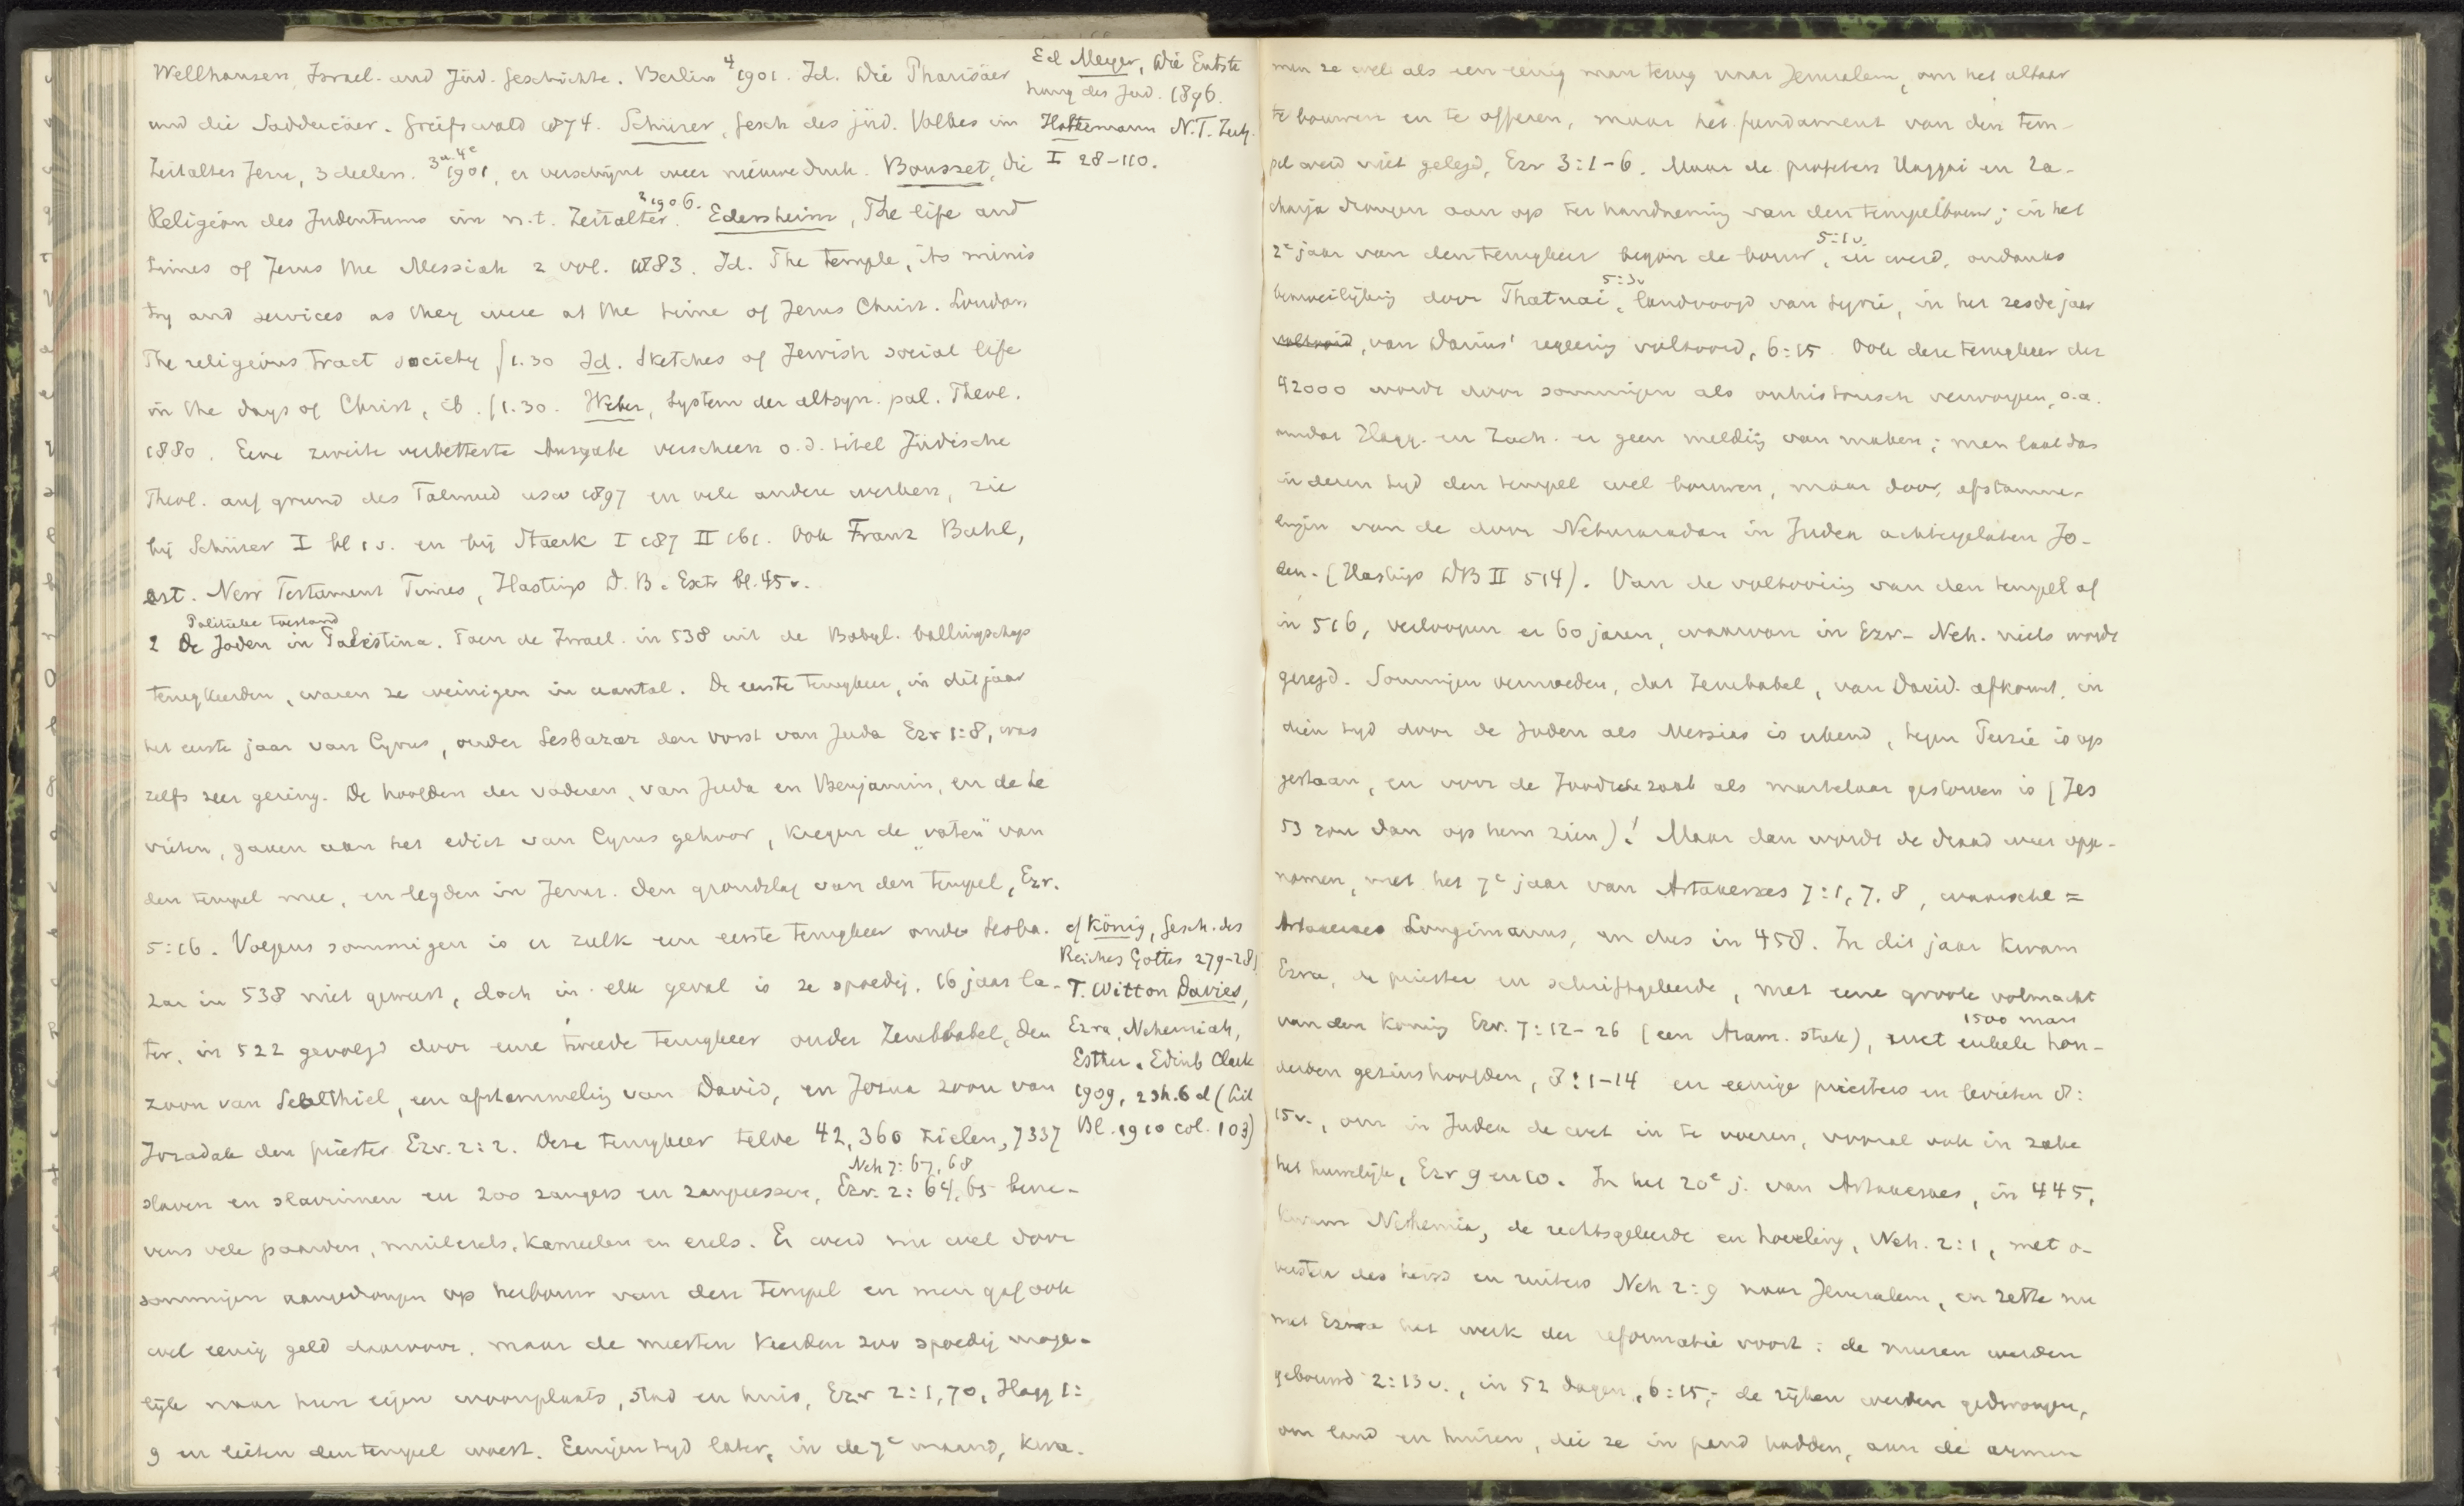 Wellhausen, Israel. und Jüd. Geschichte. Berlin ⁴1901. Id. Die Pharisäer
und die Sadducäer. Greifswald 1874. Schürer, Gesch des jüd. Volkes im
Zeitalter Jesu, 3 deelen. 3e u. 4e 1901, er verschijnt weer nieuwe druk. Bousset, Die
Religion des Judentums im n.t. Zeitalter. ²1906. Edersheim, The life and
times of Jesus the Messiah 2 vol. 1883. Id. The temple, its minis
try and services as they were at the time of Jesus Christ. London
The religious tract society ƒ1.30 Id. Sketches of Jewish social life
in the days of Christ, ib. ƒ1.30. Weber, System der altsyn. pal. Theol.
1880. Eine zweite verbetterte Ausgabe verscheen o.d. titel Jüdische
Theol. auf grund des Talmud usw 1897 en vele andere werken, zie
bij Schürer I bl 1 v. en bij Staerk I 187 II 161. Ook Franz Buhl,
art. New Testament Times, Hastings D.B. Extr bl. 45 v.
Ed Meyer, Die Entste
hung des Jud. 1896.
Holtzmann N.T. Zeitg.
I 28-110.
Politieke toestand
2 De Joden in Palestina. Toen de Israel. in 538 uit de Babyl. ballingschap
terugkeerden, waren ze weinigen in aantal. De eerste terugkeer, in dit jaar
het eerste jaar van Cyrus, onder Sesbazar den vorst van Juda Ezr 1:8, was
zelfs zeer gering. De hoofden der vaderen, van Juda en Benjamin, en de Le
vieten, gaven aan het edict van Cyrus gehoor, kregen de „vaten" van
den tempel mee, en legden in Jeruz. den grondslag van den tempel, Ezr.
5:16. Volgens sommigen is er zulk een eerste terugkeer onder Sesba.
zar in 538 niet geweest, doch in elk geval is ze spoedig, 16 jaar la-
ter, in 522 gevolgd door eene tweede terugkeer onder Zerubbabel, den
zoon van Sealthiel, een afstammeling van David, en Jozua zoon van
Jozadak den priester Ezr. 2:2. Deze terugkeer telde 42,360 zielen, 7337
Neh 7:67,68
slaven en slavinnen en 200 zangers en zangeressen, Ezr. 2:64,65 bene-
vens vele paarden, muilezels, kameelen en ezels. Er werd nu wel door
sommigen aangedrongen op herbouw van den tempel en men gaf ook
wel eenig geld daarvoor, maar de meesten keerden zoo spoedig moge-
lijk naar hun eigen woonplaats, stad en huis, Ezr 2:1,70, Hagg 1:
9 en lieten den tempel woest. Eenigen tyd later, in de 7e maand, kwa-
cf König, Gesch. des
Reiches Gottes 279-28
T. Witton Davies,
Ezra, Nehemiah,
Esther. Edinb Clark
1909, 2 sh. 6 d (Lit
Bl. 1910 col. 103)
men ze wel als een eenig man terug naar Jeruzalem, om het altaar
te bouwen en te offeren, maar het fundament van den tem-
pel werd niet gelegd, Ezr 3:1-6. Maar de profeten Haggai en Za-
charja drongen aan op ter handneming van den tempelbouw; in het
2e jaar van den terugkeer begon de bouw, 5:1v. en werd, ondanks
bemoeilijking door Thatnai, 5:3v landvoogd van Syrië, in het zesde jaar
voltooid, van Darius' regeering voltooid, 6:15. Ook deze terugkeer der
42000 wordt door sommigen als onhistorisch verworpen, o.a.
omdat Hagg. en Zach. er geen melding van maken; men laat dan
in dezen tyd den tempel wel bouwen, maar door afstamme-
lingen van de door Nebuzaradan in Judea achtergelaten Jo-
den. (Hastings DB II 514). Van de voltooiing van den tempel af
in 516, verloopen er 60 jaren, waarvan in Ezr- Neh. niets wordt
gezegd. Sommigen vermoeden, dat Zerubbabel, van David. afkomst, in
dien tyd door de Joden als Messias is erkend, tegen Perzië is op
gestaan, en voor de Joodsche zaak als martelaar gestorven is (Jes
53 zou dan op hem zien)! Maar dan wordt de draad weer opge-
nomen, met het 7e jaar van Artaxerxes 7:1,7,8, waarschl =
Artaxerxes Longimanus, en dus in 458. In dit jaar kwam
Ezra, de priester en schriftgeleerde, met eene groote volmacht
van den koning Ezr. 7:12-26 (een Aram. stuk), met enkele hon-
1500 man
derden gezinshoofden, 8:1-14 en eenige priesters en levieten 8:
15v., om in Judea de wet in te voeren, vooral ook in zake
het huwelijk, Ezr 9 en 10. In het 20e j. van Artaxerxes, in 445,
kwam Nehemia, de rechtsgeleerde en hoveling, Neh. 2:1, met o-
versten des heirs en ruiters Neh 2:9 naar Jeruzalem, en zette nu
met Ezra het werk der reformatie voort: de muren werden
gebouwd 2:13v., in 52 dagen, 6:15; de rijken werden gedwongen,
om land en huizen, die ze in pand hadden, aan de armen